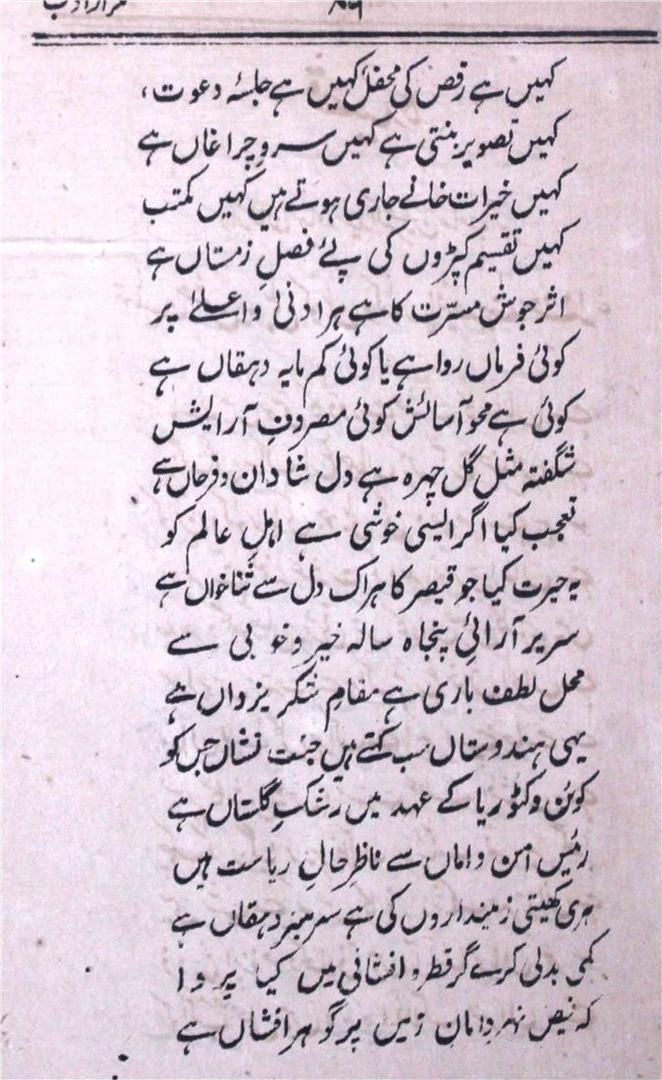 کہیں ہے رقص کی محفل کہیں ہے جلسۂ دعوت،
کہیں تصویر بنتی ہے کہیں سرو چراغاں ہے
کہیں خیرات خانے جاری ہوتے ہیں کہیں مکتب
کہیں تقسیم کپڑوں کی پئے فصلِ زمستاں ہے
اثر جوش مسرّت کا ہے ہر ادنیٰ و اعلےٰ پر
کوئی فرماں روا ہے یا کوئی کم مایہ دہقاں ہے
کوئی ہے محو آسائش کوئی مصروفِ آرایش
شگفتہ مثل گل چہرہ ہے دل شادان و فرحاں ہے
تعجب کیا اگر ایسی خوشی ہے اہلِ عالم کو
یہ حیرت کیا جو قیصر کا ہر اک دل سے ثنا خواں ہے
سریر آرائیِ پنجاہ سالہ خیر و خوبی سے
محل لطف باری ہے مقامِ شکر یزداں ہے
یہی ہندوستاں سب کہتے ہیں جنت نشاں جس کو
کوئن وکٹوریا کے عہد میں رشکِ گلستاں ہے
رئیس امن و اماں سے ناظرِ حالِ ریاست ہیں
ہری کھیتی زمینداروں کی ہے سرسبز دہقاں ہے
کمی بدلی کرے گر قطرہ افشانی میں کیا پروا
کہ فیض نہر دامانِ زمیں پر گوہر افشاں ہے